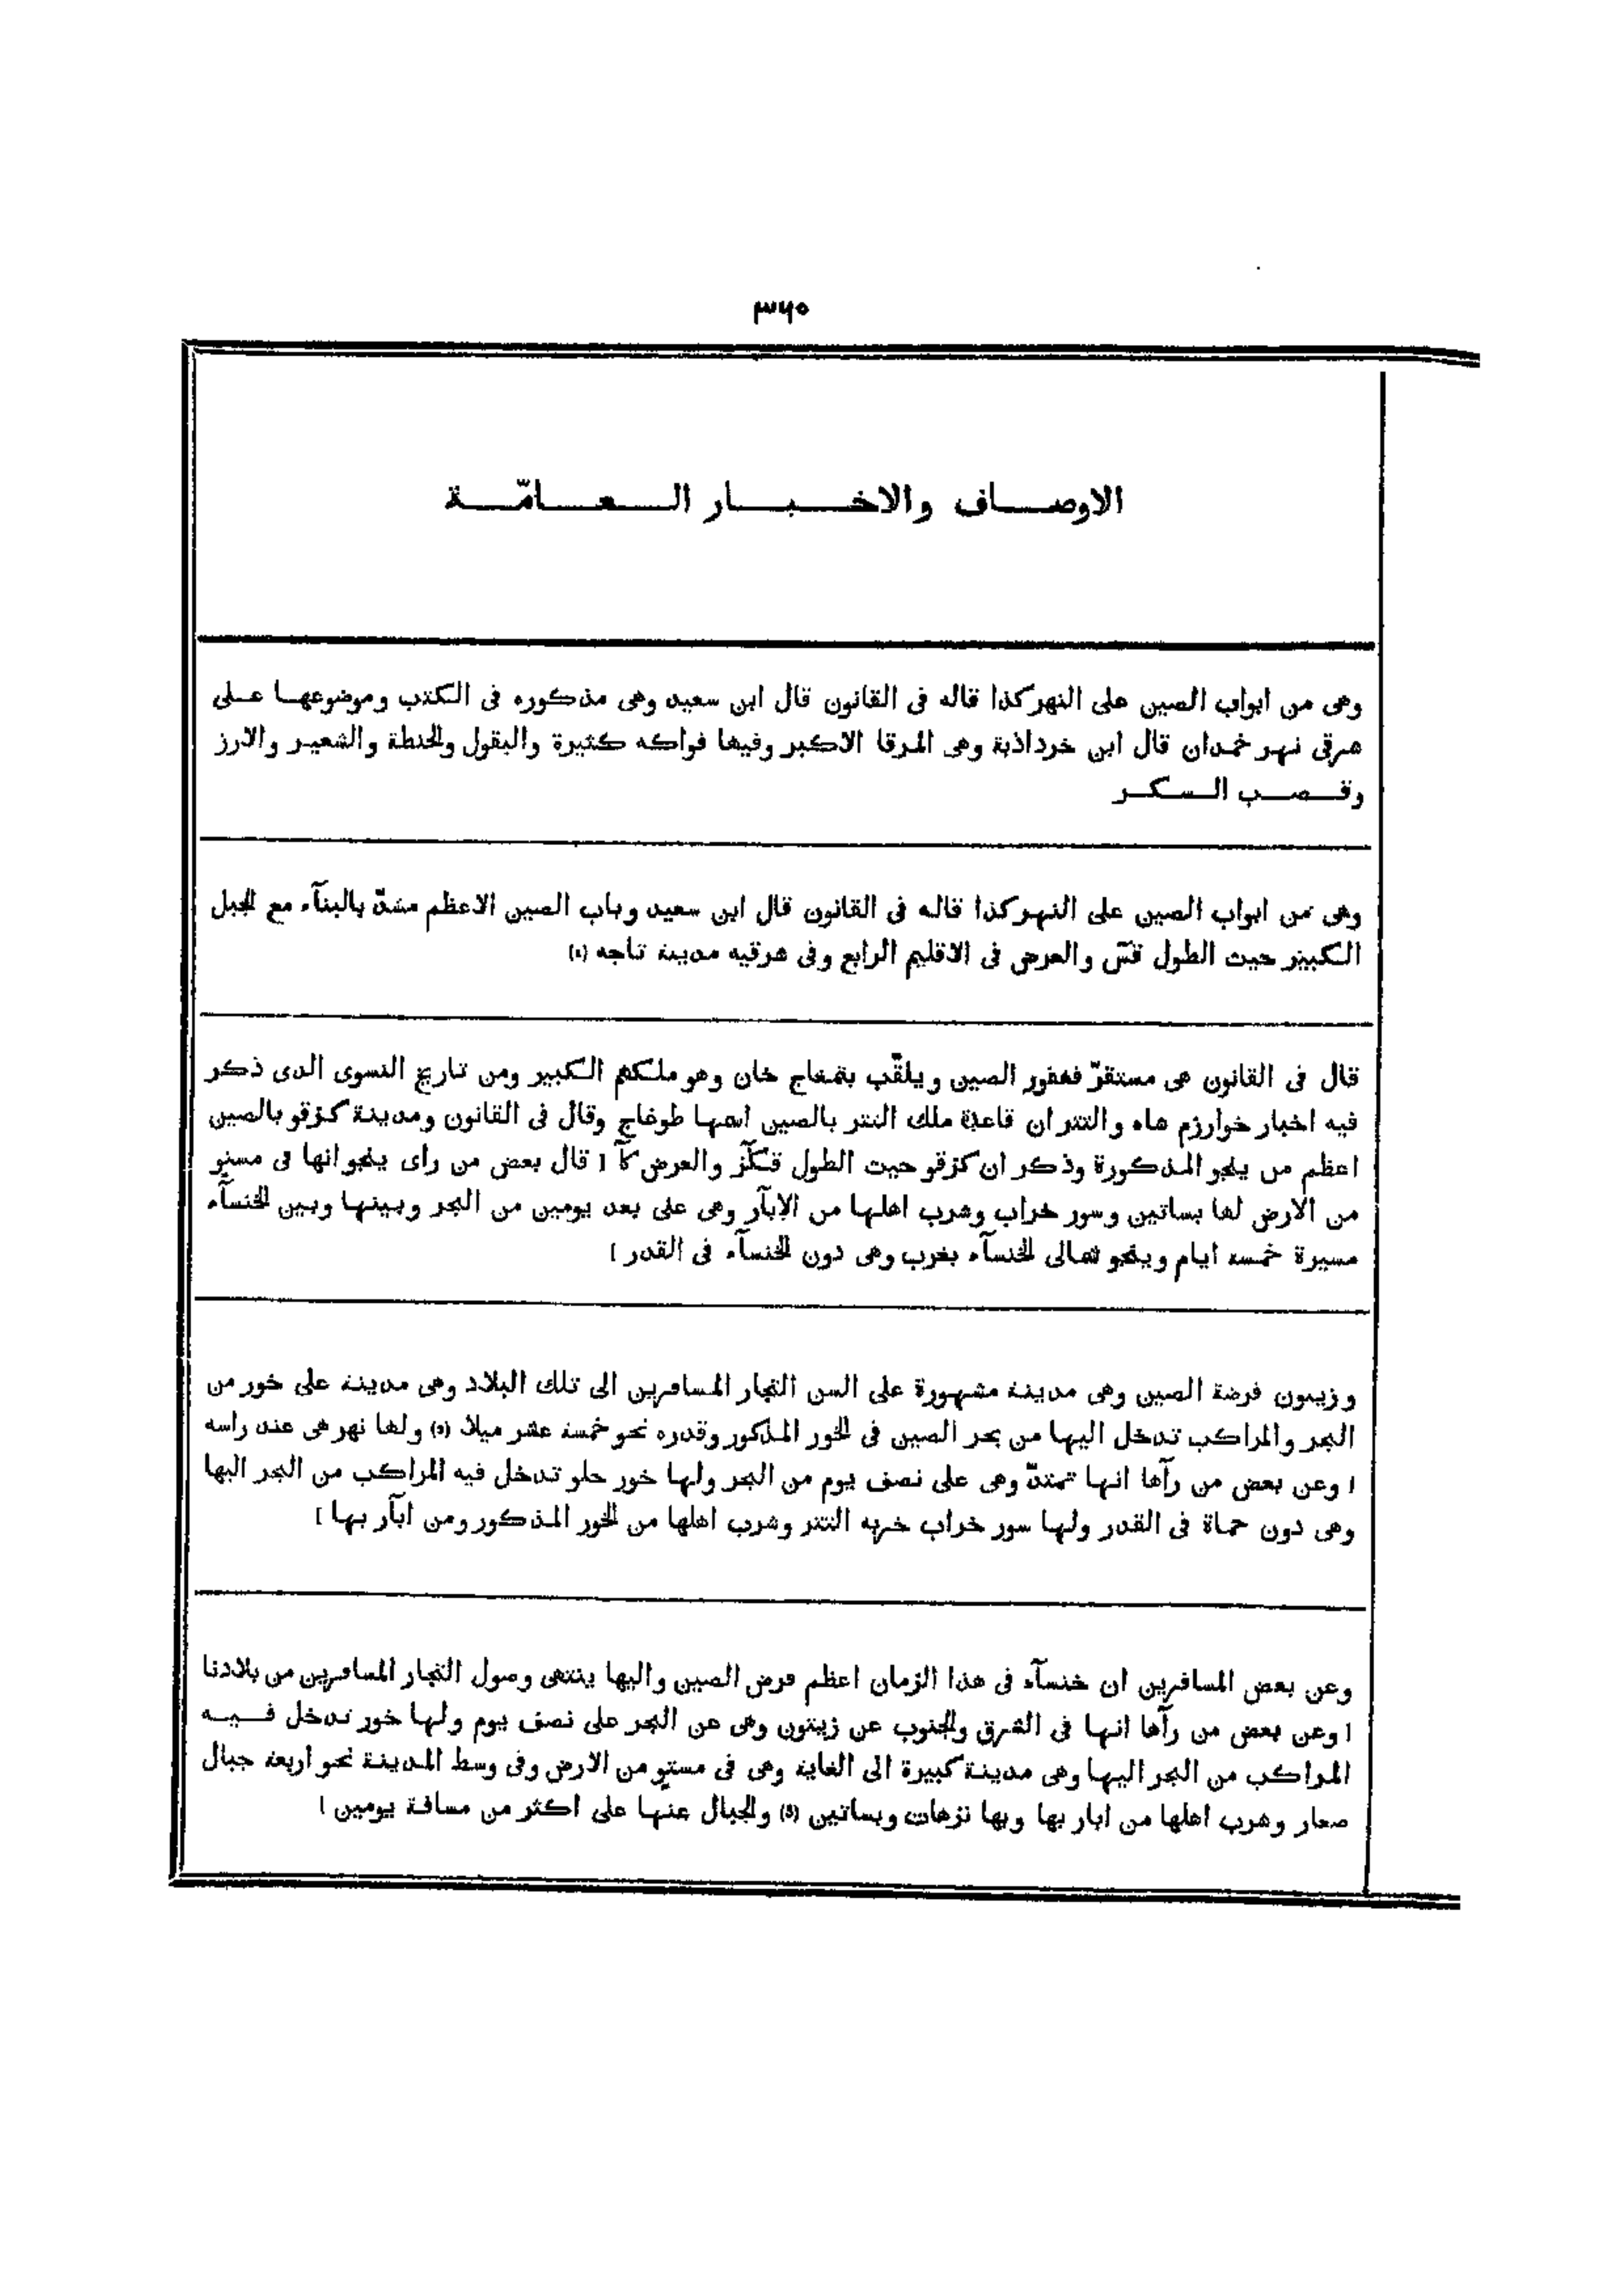 ٣٦٥
الاوصاف والاخبار العامّة
وهى من ابواب الصين على النهر كذا قاله فى القانون قال ابن سعيد وهى مذكوره فى الكتب وموضوعها على
شرقى نهر خمدان قال ابن خرداذبة وهى المرقا الاكبر وفيها فواكه كثيرة والبقول والحنطة والشعير والارز
وقصب السكر
وهى من ابواب الصين على النهر كذا قاله فى القانون قال ابن سعيد وباب الصين الاعظم مشدّ بالبنآء مع الجبل
الكبير حيث الطول قسّ والعرض فى الاقليم الرابع وفى شرقيه مدينة تاجه (١)
قال فى القانون هى مستقرّ فغفور الصين ويلقّب بتمغاج خان وهو ملكهم الكبير ومن تاريخ النسوى الدى ذكر
فيه اخبار خوارزم شاه والتتر ان قاعدة ملك التتر بالصين اسمها طوغاج وقال فى القانون ومدينة كزقو بالصين
اعظم من ينجو المذكورة وذكر ان كزقو حيث الطول قكَز والعرض كآ [ قال بعض من راى ينجو انها فى مستوٍ
من الارض لها بساتين وسور خراب وشرب اهلها من الابآر وهى على بعد يومين من البحر وبينها وبين الخنسآء
مسيرة خمسه ايام وينجو شمالى الخنسآء بغرب وهى دون الخنسآء فى القدر ]
وزيتون فرضة الصين وهى مدينة مشهورة على السن التجار المسافرين الى تلك البلاد وهى مدينة على خور من
البحر والمراكب تدخل اليها من بحر الصين فى الخور المذكور وقدره نحو خمسة عشر ميلا (٢) ولها نهر هى عند راسه
[ وعن بعض من رآها انها تمتدّ وهى على نصف يوم من البحر ولها خور حلو تدخل فيه المراكب من البحر اليها
وهى دون حماة فى القدر ولها سور خراب خربه التتر وشرب اهلها من الخور المذكور ومن ابآر بها ]
وعن بعض المسافرين ان خنسآء فى هذا الزمان اعظم فرض الصين واليها ينتهى وصول التجار المسافرين من بلادنا
[ وعن بعض من رآها انها فى الشرق والجنوب عن زيتون وهى عن البحر على نصف يوم ولها خور تدخل فيه
المراكب من البحر اليها وهى مدينة كبيرة الى الغاية وهى فى مستوٍ من الارض وفى وسط المدينة نحو اربعة جبال
صغار وشرب اهلها من ابار بها وبها نزهات وبساتين (٣) والجبال عنها على اكثر من مسافة يومين ]